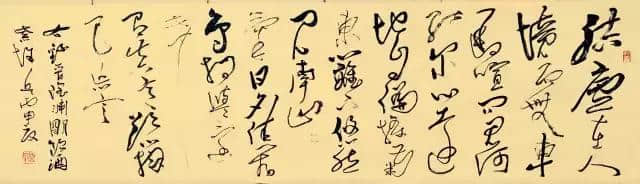 結廬在人
境而無車
馬喧問君何
能尔心遠
地自偏採菊
東籬下悠然
見南山
山氣日夕佳飛
鳥相與還
此中
有真意欲辯
已忘言
右錄晉陶淵明飲酒